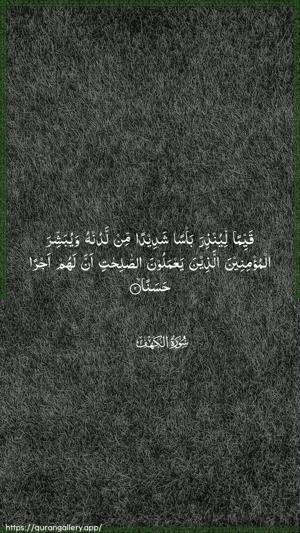 قَيِّمًا لِّيُنْذِرَ بَاْسًا شَدِيْدًا مِّنْ لَّدُنْهُ وَيُبَشِّرَ
الْمُؤْمِنِيْنَ الَّذِيْنَ يَعْمَلُوْنَ الصّٰلِحٰتِ اَنَّ لَهُمْ اَجْرًا
حَسَنًاۙ ۝٢
سُوْرَةُ الْكَهْف
https://qurangallery.app/